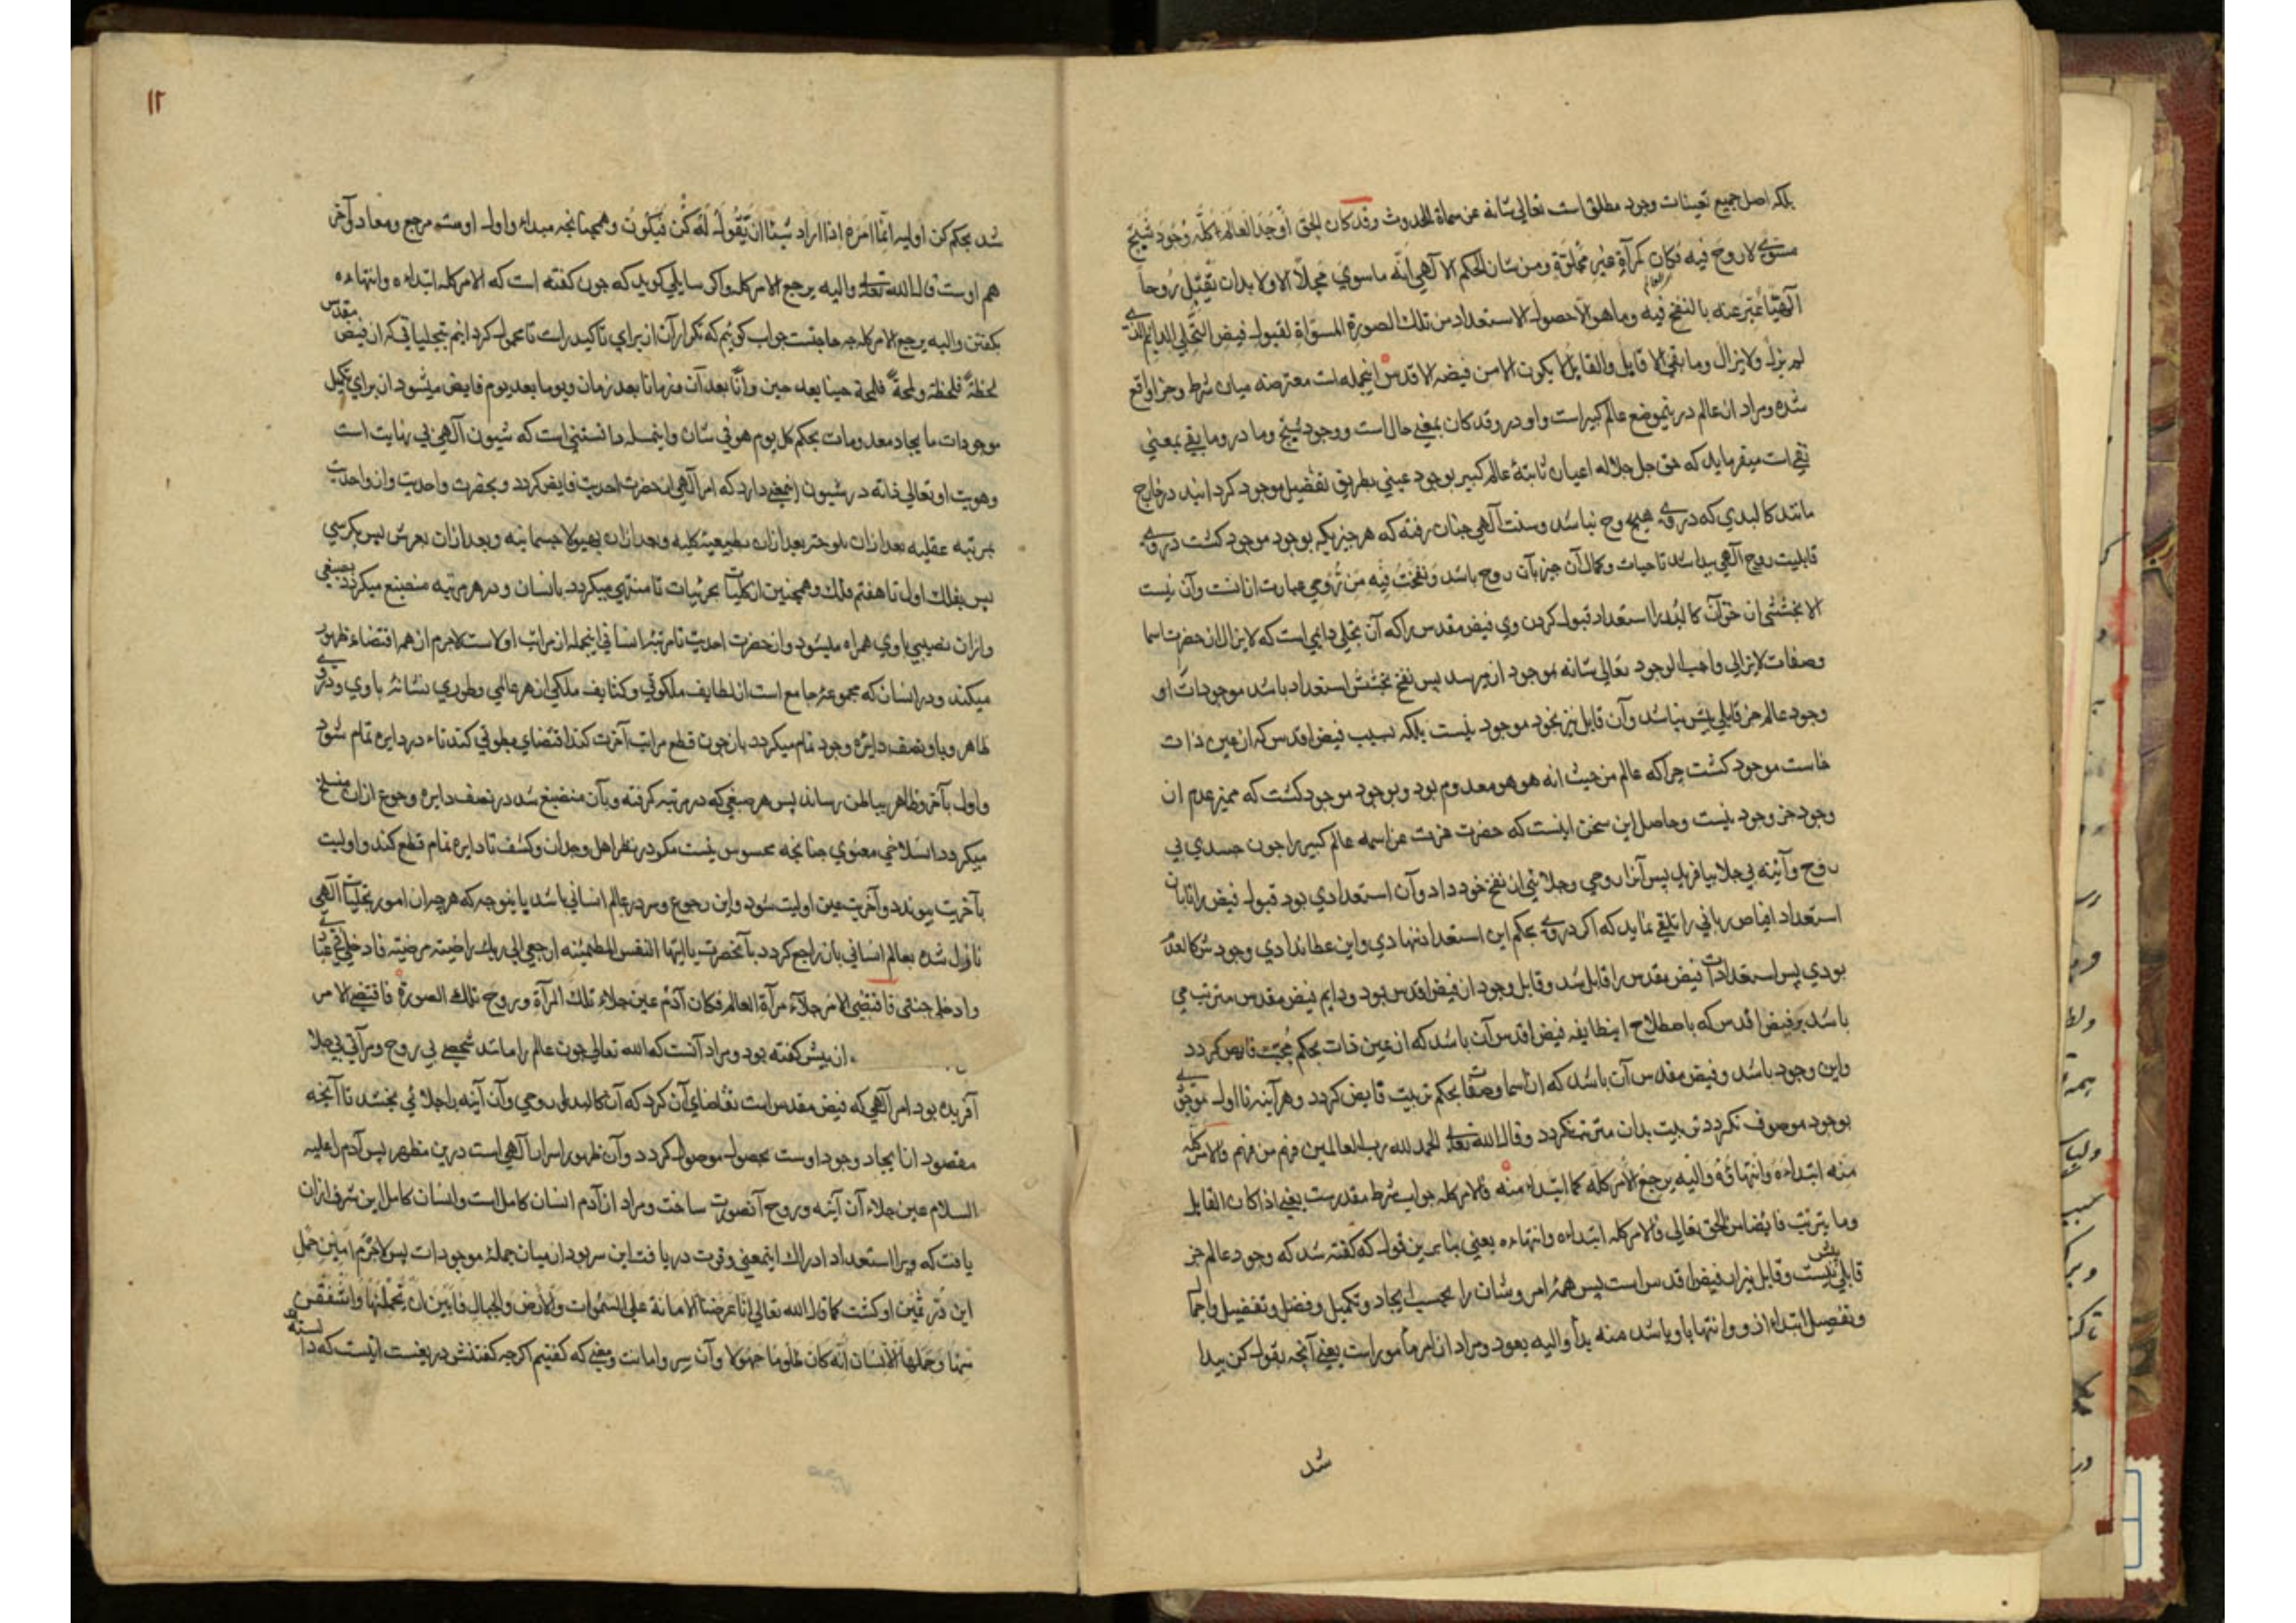 بلکه اصل جمیع تعینات وجود مطلق است تعالی شانه عن سماة الحدوث وقد کان الحق اَوجَدَ العالَمَ کُلَّه وُجُودَ شَبَحٍ
مسَوّیً لا روحَ فیه فکان کمرآةٍ غیر مجلوّةٍ ومن شان الحکم الالهی انّه ماسوی محلّاً الا ولا بد ان یَقبَل رُوحاً
آلهیّاً عُبّر عنه بالنفخ فیه وما هو الّا حصول الاستعداد من تلك الصورة المسوّاة لقبول فیض التجلّی الدایم الذی
لم یزل ولا یزال وما بقی الا قابل والقابل لا یکون الا من فیضه الاقدس اینجمله است معترضه میان شرط وجزا واقع
شده ومراد از عالم درینموضع عالم کبیر است واو در وقد کان بمعنی حال است ووجود شبح وما در وما بقی بمعنی
نفی است میفرماید که حق جل جلاله اعیان ثابتهٔ عالم کبیر بوجود عینی بطریق تفضیل موجود کردانید در خارج
مانند کالبدی که در وی هیچ روح نباشد وسنت آلهی چنان رفته که هر چیز یکه بوجود موجود کشت در وی
قابلیت روح آلهی بباشد تا حیات وکمال آن چیز بآن روح باشد ونَفَختُ فِیهِ مِن رُوحی عبارت ازانست وآن نیست
الا بخششی از حق آن کالبد را استعداد قبول کردن وی فیض مقدس را که آن تجلی دایمی است که لایزال از حضرت اسما
وصفات لایزالی واجب الوجود تعالی شانه بموجود ازو میرسد پس نفخ بخشش استعداد باشد موجودات او
وجود عالم جز قابلی پیش نباشد وآن قابل نیز بخود موجود نیست بلکه بسبب فیض اقدس که از عین ذات
خاست موجود کشت چرا که عالم من حیث انه هو هو معدوم بود وبوجود موجود کشت که ممیز عدم از
وجود جز وجود نیست وحاصل این سخن اینست که حضرت عزت عز اسمه عالم کبیر را چون جسدی بی
روح وآینه بی جلا بیافرید پس آنرا روحی وجلائی از نفخ خود داد وآن استعدادی بود قبول فیض را تا بآن
استعداد افیاض ربانی را تلقی نماید که اکر در وی بحکم این استعداد ننهادی واین عطا ندادی وجودش کالعدم
بودی پس استعدادات فیض مقدس را قابل شد وقابل وجود از فیض اقدس بود ودایم فیض مقدس مترتب می
باشد بر فیض اقدس که باصطلاح اینطایفه فیض اقدس آن باشد که از عین ذات بحکم محبت فایض کردد
واین وجود باشد وفیض مقدس آن باشد که از اسما وصفات بحکم تربیت فایض کردد وهر آینه تا اول موجودی
بوجود موصوف نکردد تربیت بدان مترتب نکردد وقال الله تعالی الحمد لله رب العالمین فهم من فهم فالامر کلّه
منه ابتداءه وانتهاؤه والیه یرجع الامر کلّه کما ابتداء منه فالامر کله جواب شرط مقدرست یعنی اذا کان القابل
وما یترتب فایضا من الحق تعالی فالامر کله ابتداءه وانتهاءه یعنی بنا برین قول که کفته شد که وجود عالم جز
قابلی پیش نیست وقابل نیز از فیض اقدس است پس همهٔ امر وشان را بحسب ایجاد وتکمیل وفضل وتفضیل واجمال
وتفصیل ابتدا ازو وانتها باو باشد منه بدأ والیه یعود ومراد از امر مأمور است یعنی آنچه بقول کن پیدا
شد
١١
شد بحکم کن اولیه انّما امره اذا اراد شیئا ان یّقُولَ لَهُ کُن فَیَکُونُ وهمچنانچه مبداء واول اوست مرجع ومعاد وآخر
هم اوست قال الله تعالی والیه یرجع الامر کله واکر سایلی کوید که چون کفته است که الامر کله ابتداءه وانتهاءه
بکفتن والیه یرجع الامر کله چه حاجتست جواب کوئیم که تکرار آن از برای تاکید راست تا محمول کردانیم بتجلیاتی که از فیض مقدس
لحظةً فلحظة ولمحةً فلمحة حینا بعد حین وانًا بعد آن وزمانا بعد زمان ویوما بعد یوم فایض میشود از برای تکمیل
موجودات بایجاد معدومات بحکم کل یوم هو فی شان واینمسله دانستنی است که شیون آلهی بی نهایت است
وهویت او تعالی ذاته در شیون انمعنی دارد که امر آلهی از حضرت احدیت فایض کردد وبحضرت واحدیت واز واحدیت
بمرتبه عقلیه بعد ازان بلوحیه بعد ازان بطبیعیت کلیه وبعد ازان بهیولا جسمانیه وبعد ازان بعرش پس بکرسی
پس بفلك اول تا هفتم فلك وهمچنین از کلیات بجزئیات تا منتهی میکردد بانسان ودر هر مرتبه منصبغ میکردد بصبغی
وازان نصیبی باوی همراه میشود واز حضرت احدیت تا مرتبهٔ انسانی اینجمله از مراتب اولاست لاجرم از هم اقتضاء ظهور
میکند ودر انسان که مجموعهٔ جامع است از لطایف ملکوتی وکثایف ملکی از هر عالمی وطوری نشانهٔ باوی ودر وی
ظاهر وباو نصف دایرهٔ وجود تمام میکردد باز چون قطع مراتب آخرت کند اقتضای بطونی کند تاء در دایره تمام شود
واول بآخر وظاهر بباطن رساند پس هر صبغی که در مرتبه کرفته وبآن منصبغ شد در نصف دایره رجوع ازان منسلخ
میکردد انسلاخی معنوی چنانچه محسوس نیست مکر در نظر اهل وجدان وکشف تا دایره تمام قطع کند واولیت
بآخریت پیوندد وآخریت عین اولیت شود واین رجوع وسر در عالم انسانی باشد یاینوجه که هرچه از امور تجلیات آلهی
نازل شده بعالم انسانی بان راجع کردد بآنحضرت یا ایتها النفس المطمئنه ارجعی الی ربك راضیته مرضیته فادخلی فی عبادی
وادخلی جنتی فاقتضی الامر جلآء مرآة العالم فکان آدم عین جلاء تلك المرآة وروح تلك الصورة فاقتضی الامر
از پیش کفته بود ومراد آنست که الله تعالی چون عالم را مانند شبحی بی روح ومرآتی بی جلا
آفریده بود امر آلهی که فیض مقدس است تقاضای آن کرد که آن کالبد را روحی وآن آینه را جلائی بخشد تا آنچه
مقصود از ایجاد وجود اوست بحصول موصول کردد وآن ظهور اسرار آلهی است درین مظهر پس آدم علیه
السلام عین جلاء آن آینه وروح آنصورت ساخت ومراد از آدم انسان کامل است وانسان کامل این شرف ازان
یافت که ویرا استعداد ادراك اینمعنی وقوت دریافت این سر بود از میان جملهٔ موجودات پس لاجرم امین حمل
این دُرّ ثمین او کشت کما قال الله تعالی اِنّا عَرضنا الامانة علی السموات والارض والجبال فابین ان یّحمِلنَها واشفقن
منها وحملها الانسان انّه کان ظلوما جهولا وآن سر وامانت ومعنی که کفتیم اکرچه کفتنش دریغست اینست که دانسته